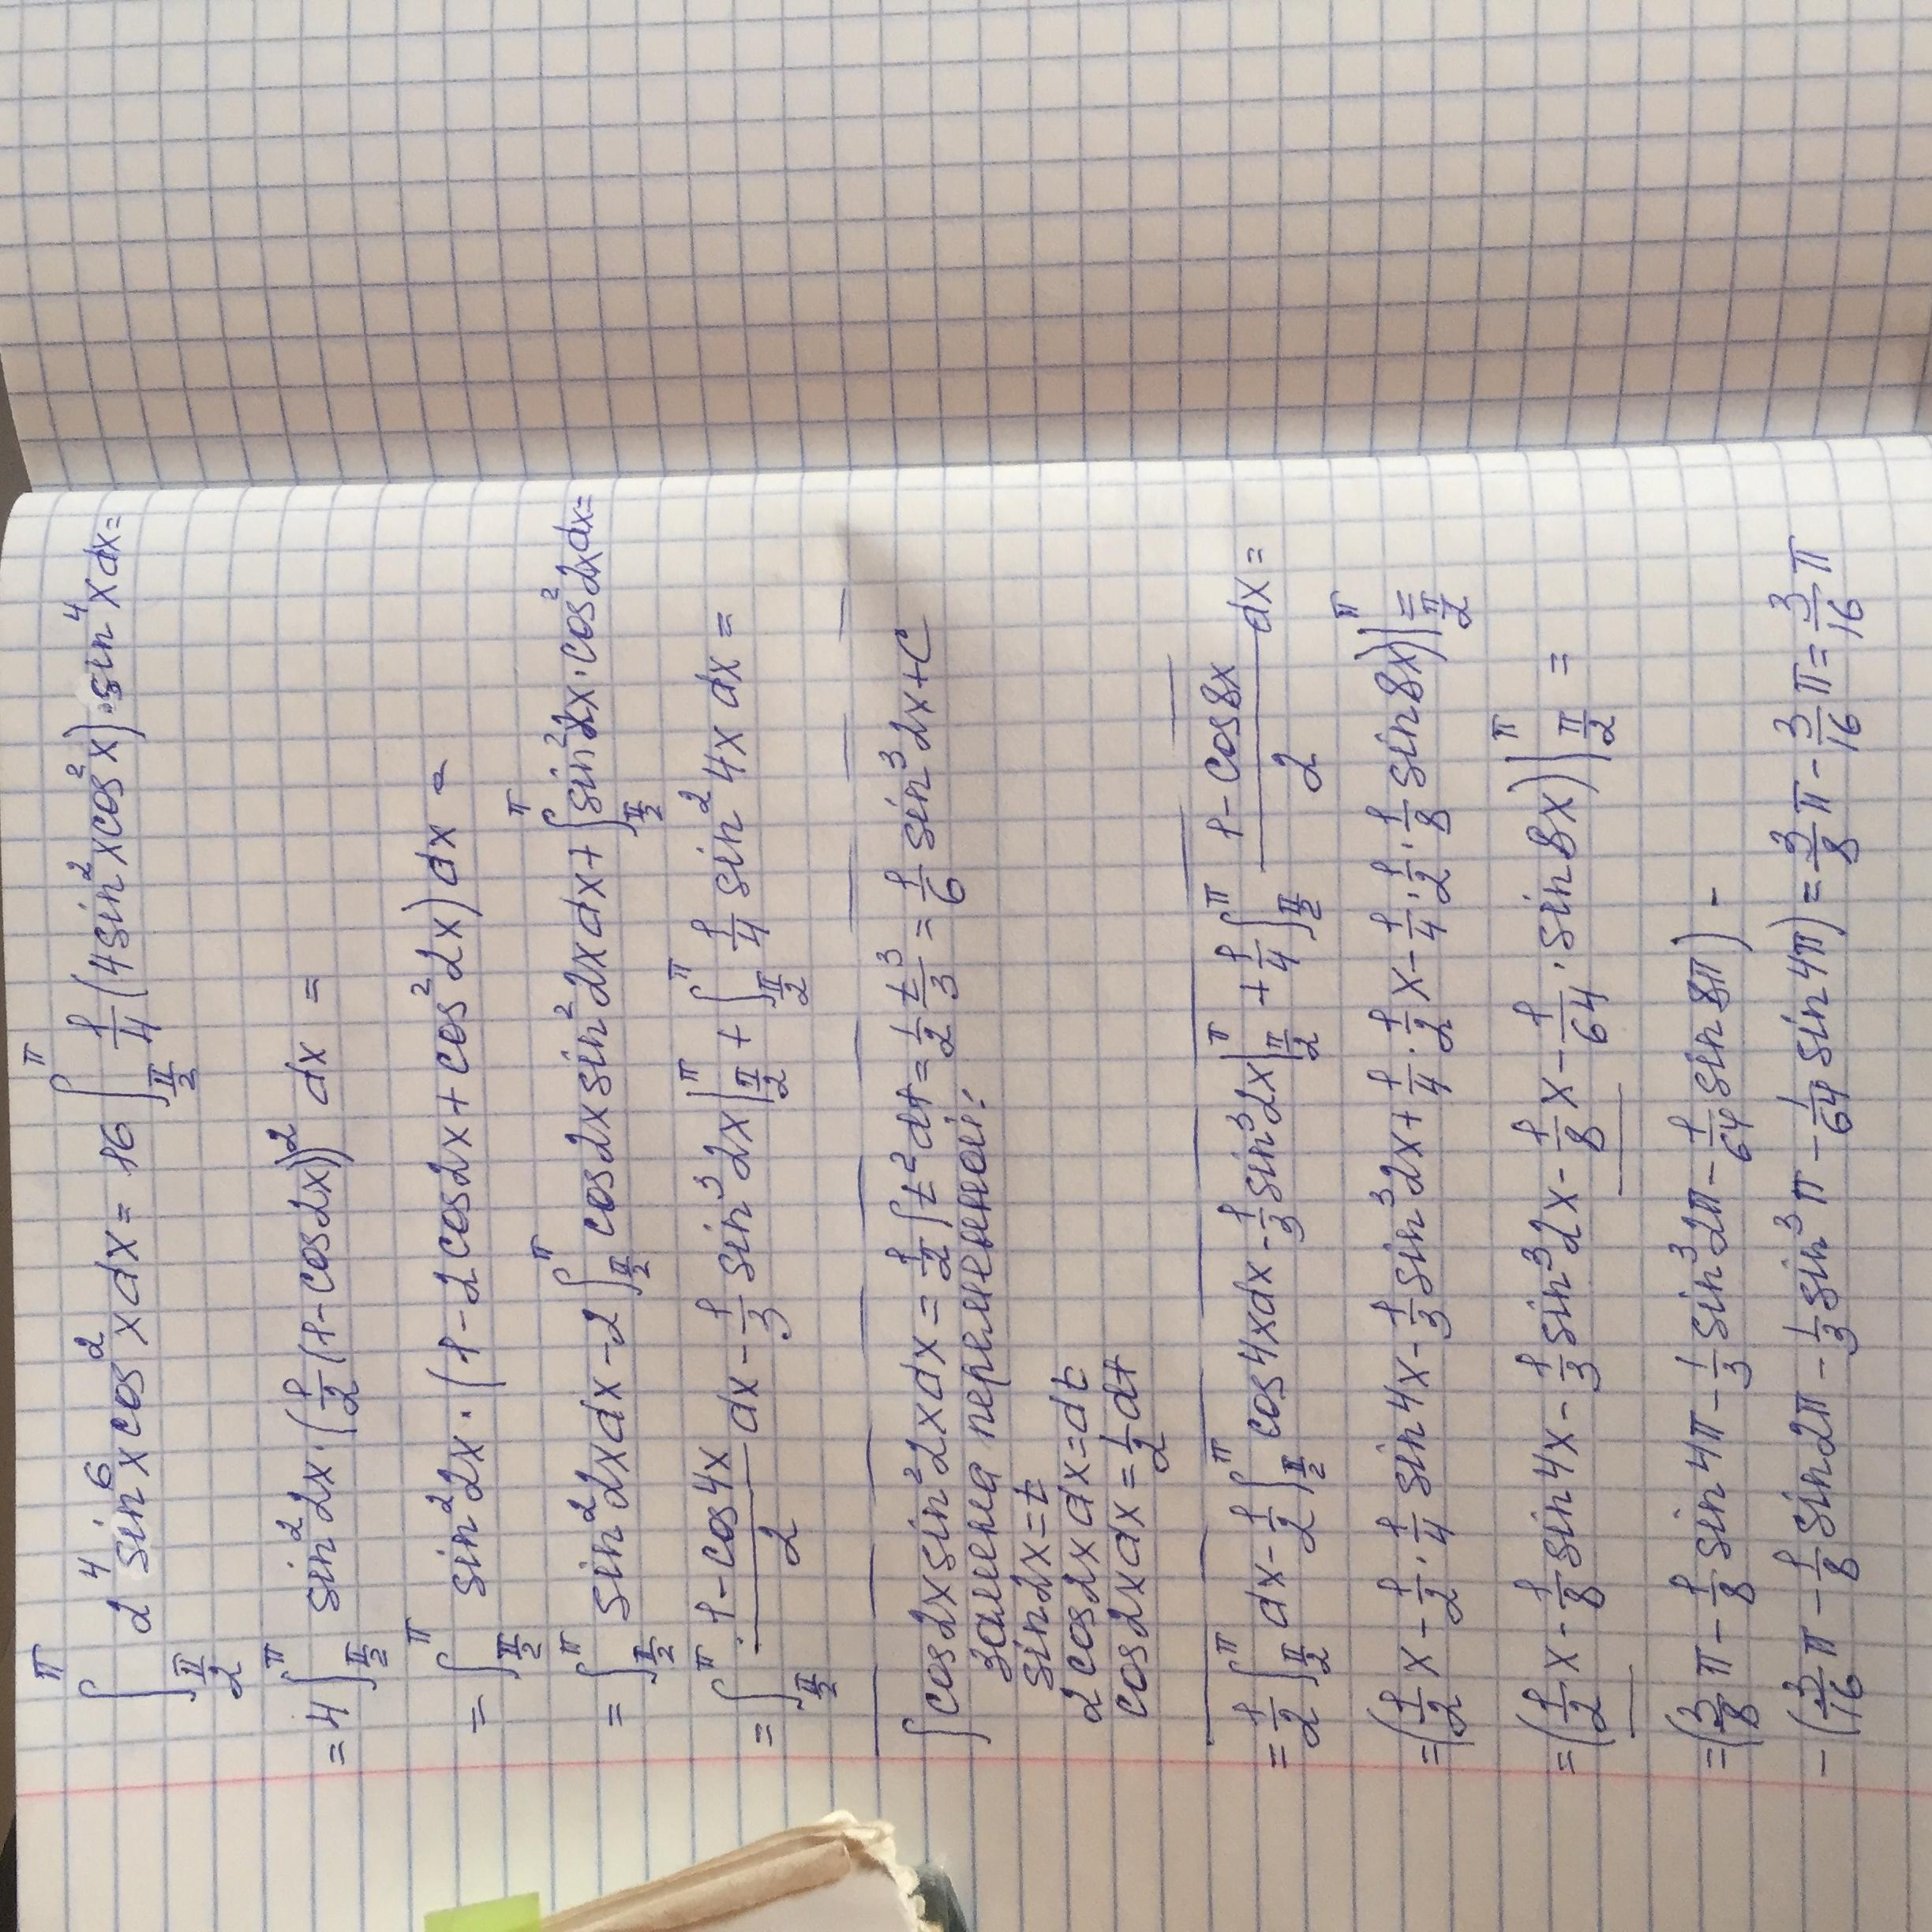 ∫_{π/2}^{π} 2⁴ sin⁶x cos²x dx = 16 ∫_{π/2}^{π} 1/4 (4 sin²x cos²x)·sin⁴x dx =
= 4 ∫_{π/2}^{π} sin²2x·(1/2 (1 - cos2x))² dx =
= ∫_{π/2}^{π} sin²2x·(1 - 2cos2x + cos²2x) dx =
= ∫_{π/2}^{π} sin²2x dx - 2 ∫_{π/2}^{π} cos2x sin²2x dx + ∫_{π/2}^{π} sin²2x·cos²2x dx =
= ∫_{π/2}^{π} (1 - cos4x)/2 dx - 1/3 sin³2x |_{π/2}^{π} + ∫_{π/2}^{π} 1/4 sin²4x dx =
∫ cos2x sin²2x dx = 1/2 ∫ t² dt = 1/2 t³/3 = 1/6 sin³2x + C
замена переменной:
sin2x = t
2cos2x dx = dt
cos2x dx = 1/2 dt
= 1/2 ∫_{π/2}^{π} dx - 1/2 ∫_{π/2}^{π} cos4x dx - 1/3 sin³2x |_{π/2}^{π} + 1/4 ∫_{π/2}^{π} (1 - cos8x)/2 dx =
= (1/2 x - 1/2·1/4 sin4x - 1/3 sin³2x + 1/4·1/2 x - 1/4·1/2·1/8 sin8x) |_{π/2}^{π} =
= (1/2 x - 1/8 sin4x - 1/3 sin³2x - 1/8 x - 1/64·sin8x) |_{π/2}^{π} =
= (3/8 π - 1/8 sin4π - 1/3 sin³2π - 1/64 sin8π) -
- (3/16 π - 1/8 sin2π - 1/3 sin³π - 1/64 sin4π) = 3/8 π - 3/16 π = 3/16 π